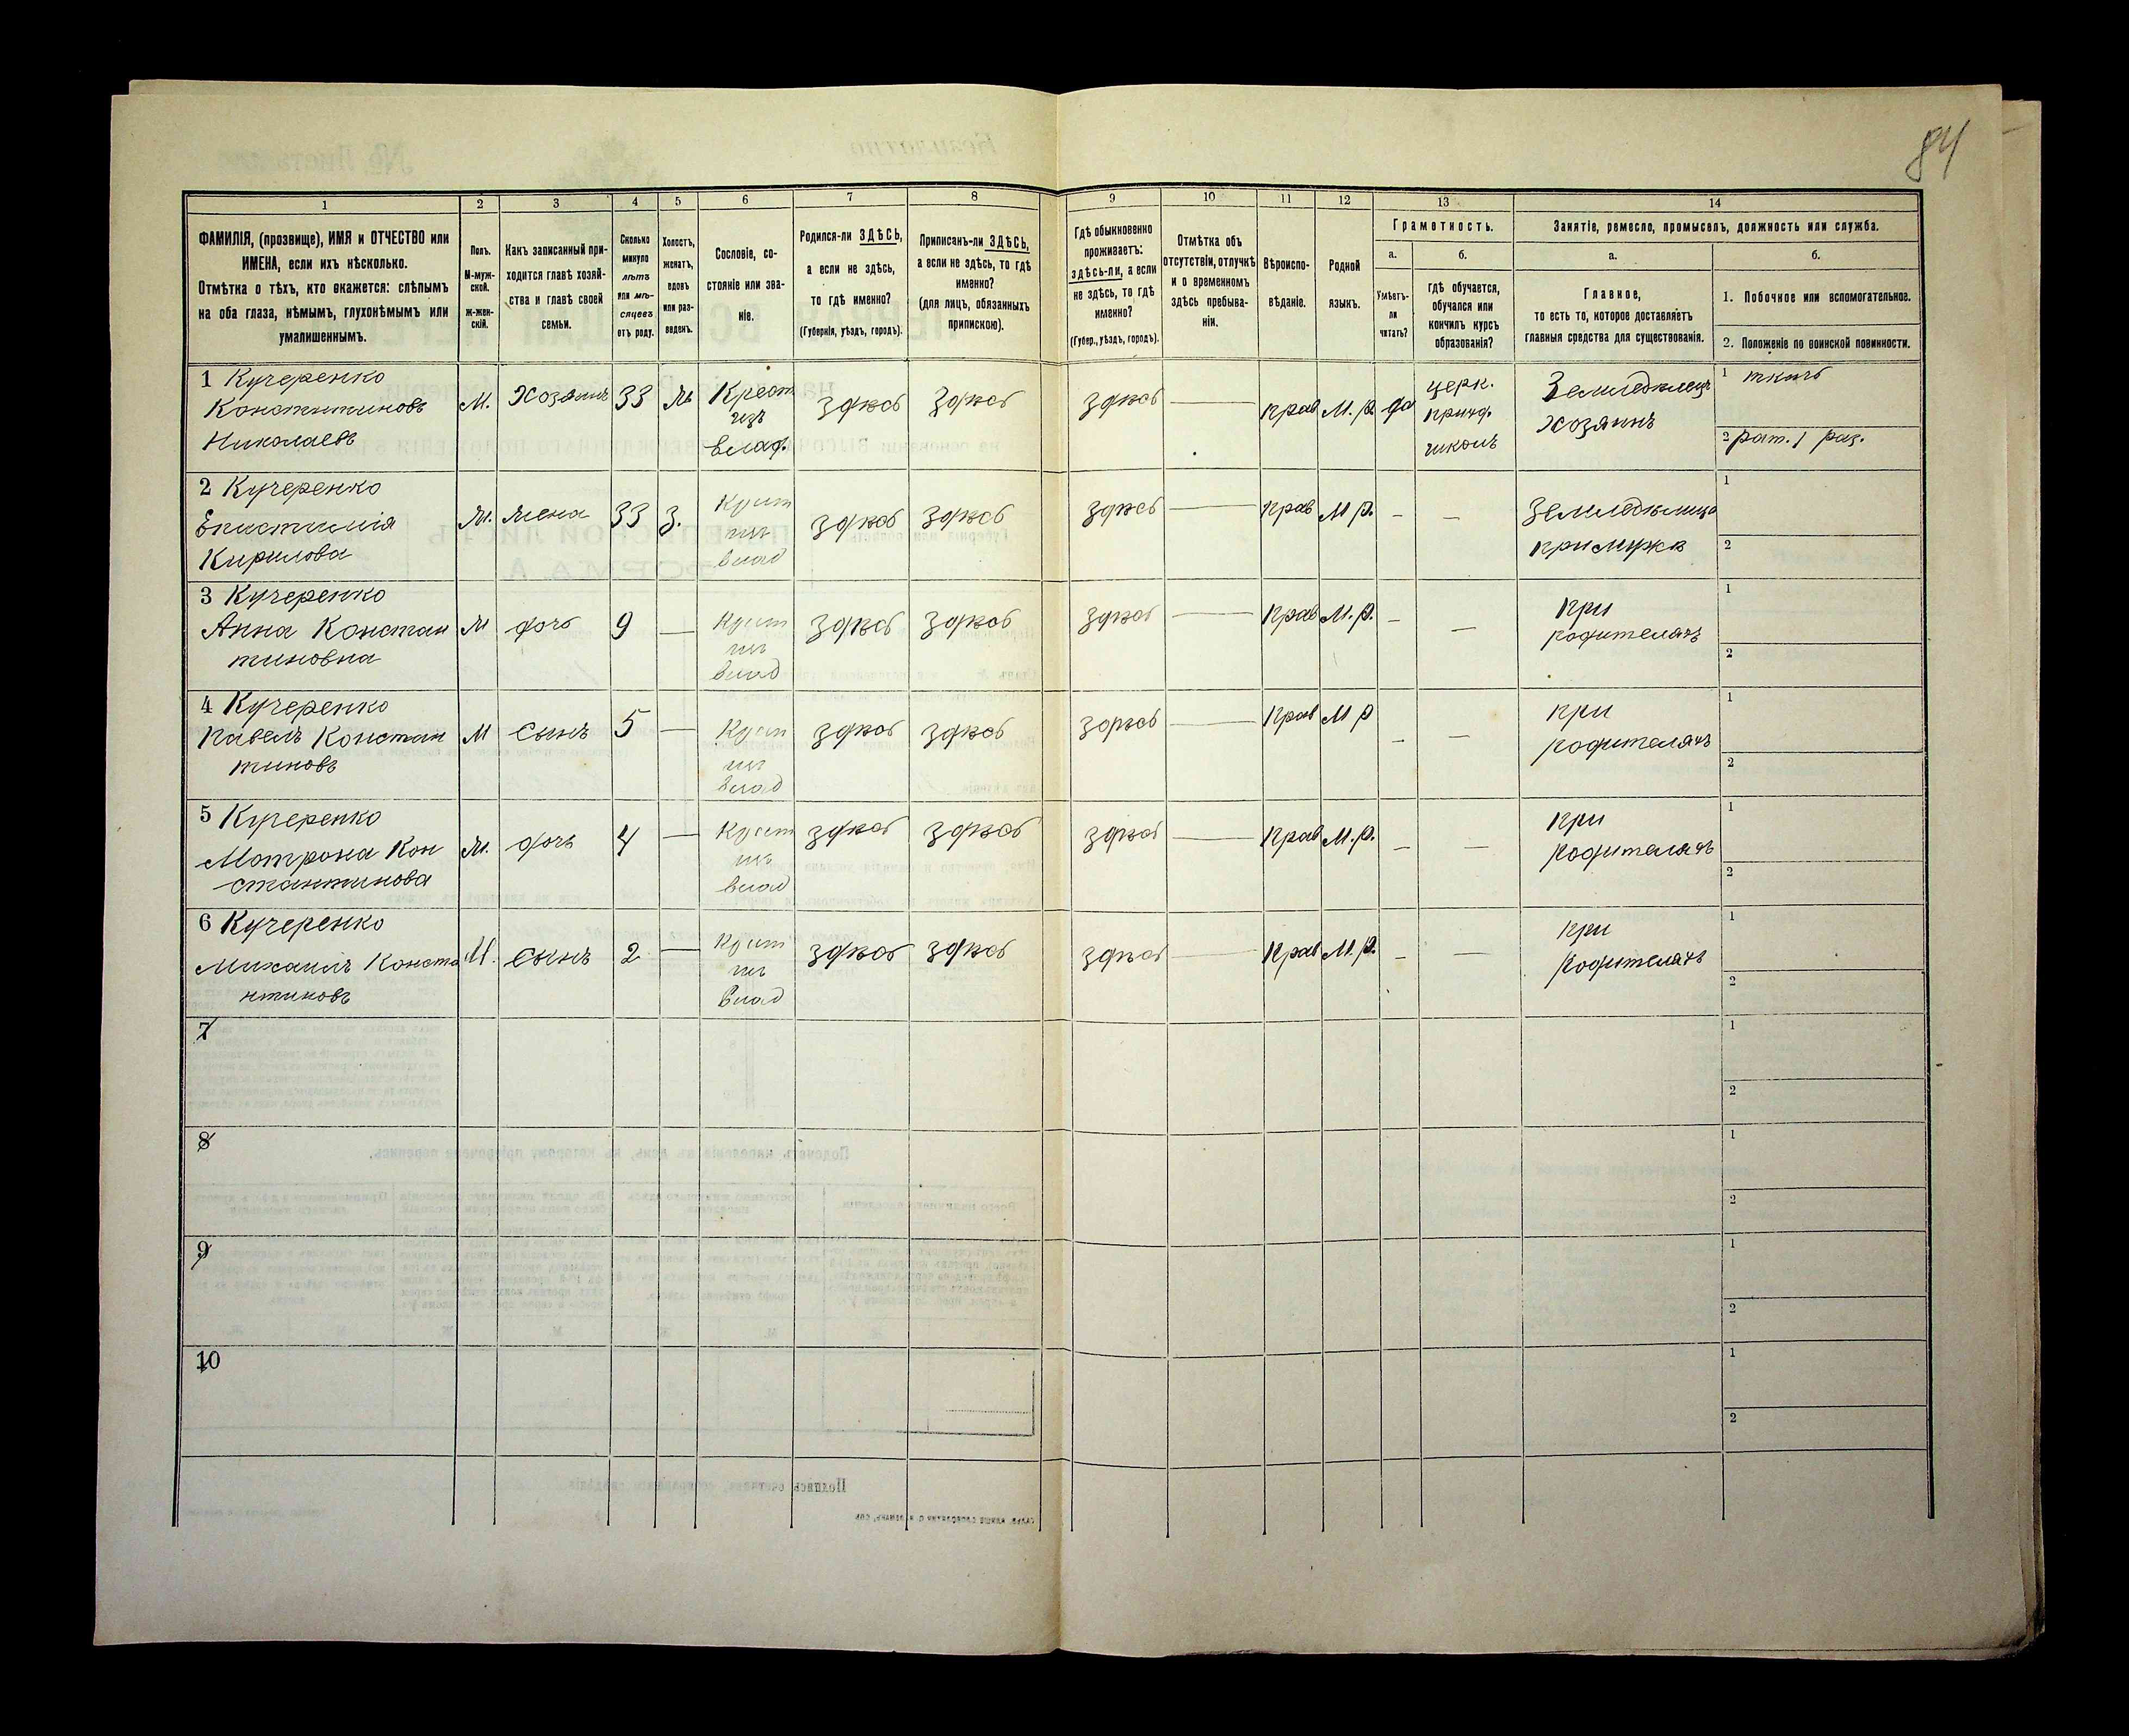 84
1 2 3 4 5 6 7 8 9 10 11 12 13 14
ФАМИЛІЯ, (прозвище), ИМЯ и ОТЧЕСТВО или
ИМЕНА, если ихъ нѣсколько.
Отмѣтка о тѣхъ, кто окажется: слѣпымъ
на оба глаза, нѣмымъ, глухонѣмымъ или
умалишеннымъ.
Полъ.
М-муж-
ской.
Ж-жен-
скій.
Какъ записанный при-
ходится главѣ хозяй-
ства и главѣ своей
семьи.
Сколько
минуло
лѣтъ
или мѣ-
сяцевъ
отъ роду.
Холостъ,
женатъ,
вдовъ
или раз-
веденъ.
Сословіе, со-
стояніе или зва-
ніе.
Родился-ли ЗДѢСЬ,
а если не здѣсь,
то гдѣ именно?
(Губернія, уѣздъ, городъ).
Приписанъ-ли ЗДѢСЬ,
а если не здѣсь, то гдѣ
именно?
(для лицъ, обязанныхъ
припискою).
Гдѣ обыкновенно
проживаетъ:
здѣсь-ли, а если
не здѣсь, то гдѣ
именно?
(Губер., уѣздъ, городъ).
Отмѣтка объ
отсутствіи, отлучкѣ
и о временномъ
здѣсь пребыва-
ніи.
Вѣроиспо-
вѣданіе.
Родной
языкъ.
Грамотность.
а.
Умѣетъ-
ли
читать?
б.
гдѣ обучается,
обучался или
кончилъ курсъ
образованія?
Занятіе, ремесло, промыселъ, должность или служба.
а.
Главное,
то есть то, которое доставляетъ
главныя средства для существованія.
б.
1. Побочное или вспомогательное.
2. Положеніе по воинской повинности.
1 Кучеренко
Константиновъ
Николаевъ
М.
Хозяинъ
33
Крест
изъ
влад.
здѣсь
здѣсь
здѣсь
—
прав
М. р.
да
церк.
приход.
школъ
Земледѣлецъ
хозяинъ
1 ткачъ
2 рат. 1 раз.
2 Кучеренко
Епистимія
Кирилова
М.
Жена
33
З.
Крест
изъ
влад
здѣсь
здѣсь
здѣсь
—
прав
М р.
–
–
земледѣлица
при мужѣ
1
2
3 Кучеренко
Анна Констан
тиновна
М
дочь
9
—
Крест
изъ
влад
здѣсь
здѣсь
здѣсь
—
прав
М. р.
–
–
при
родителяхъ
1
2
4 Кучеренко
Павелъ Констан
тиновъ
М
сынъ
5
—
Крест
изъ
влад
здѣсь
здѣсь
здѣсь
—
прав
М р
–
–
при
родителяхъ
1
2
5 Кучеренко
Мотрона Кон
стантинова
М.
дочь
4
—
Крест
изъ
влад
здѣсь
здѣсь
здѣсь
—
прав
М. р.
–
–
при
родителяхъ
1
2
6 Кучеренко
Михаилъ Конста
нтиновъ
М.
сынъ
2
—
Крест
изъ
влад
здѣсь
здѣсь
здѣсь
—
прав
М. р.
–
–
при
родителяхъ
1
2
7
1
2
8
1
2
9
1
2
10
1
2